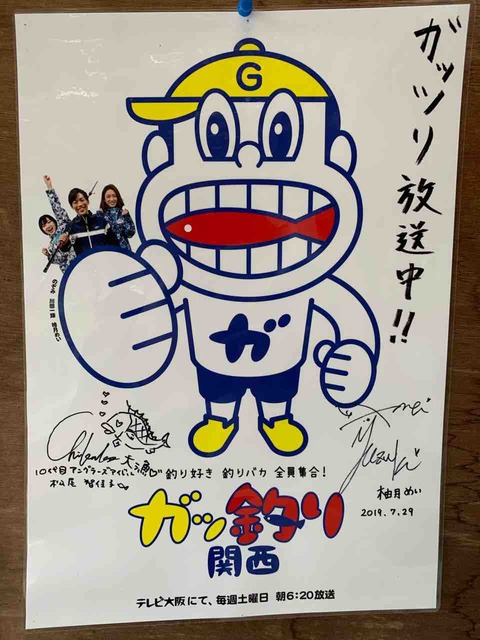 ガッツリ放送中!!
G
ガ
のどか 川畑一輝 柚月めい
大漁
10代目アングラーズアイドル
松尾 智佳子
釣り好き 釣りバカ 全員集合!
mei
Yuzuki
柚月めい
2019.7.29
ガッ釣り
関西
テレビ大阪にて、毎週土曜日 朝6:20放送